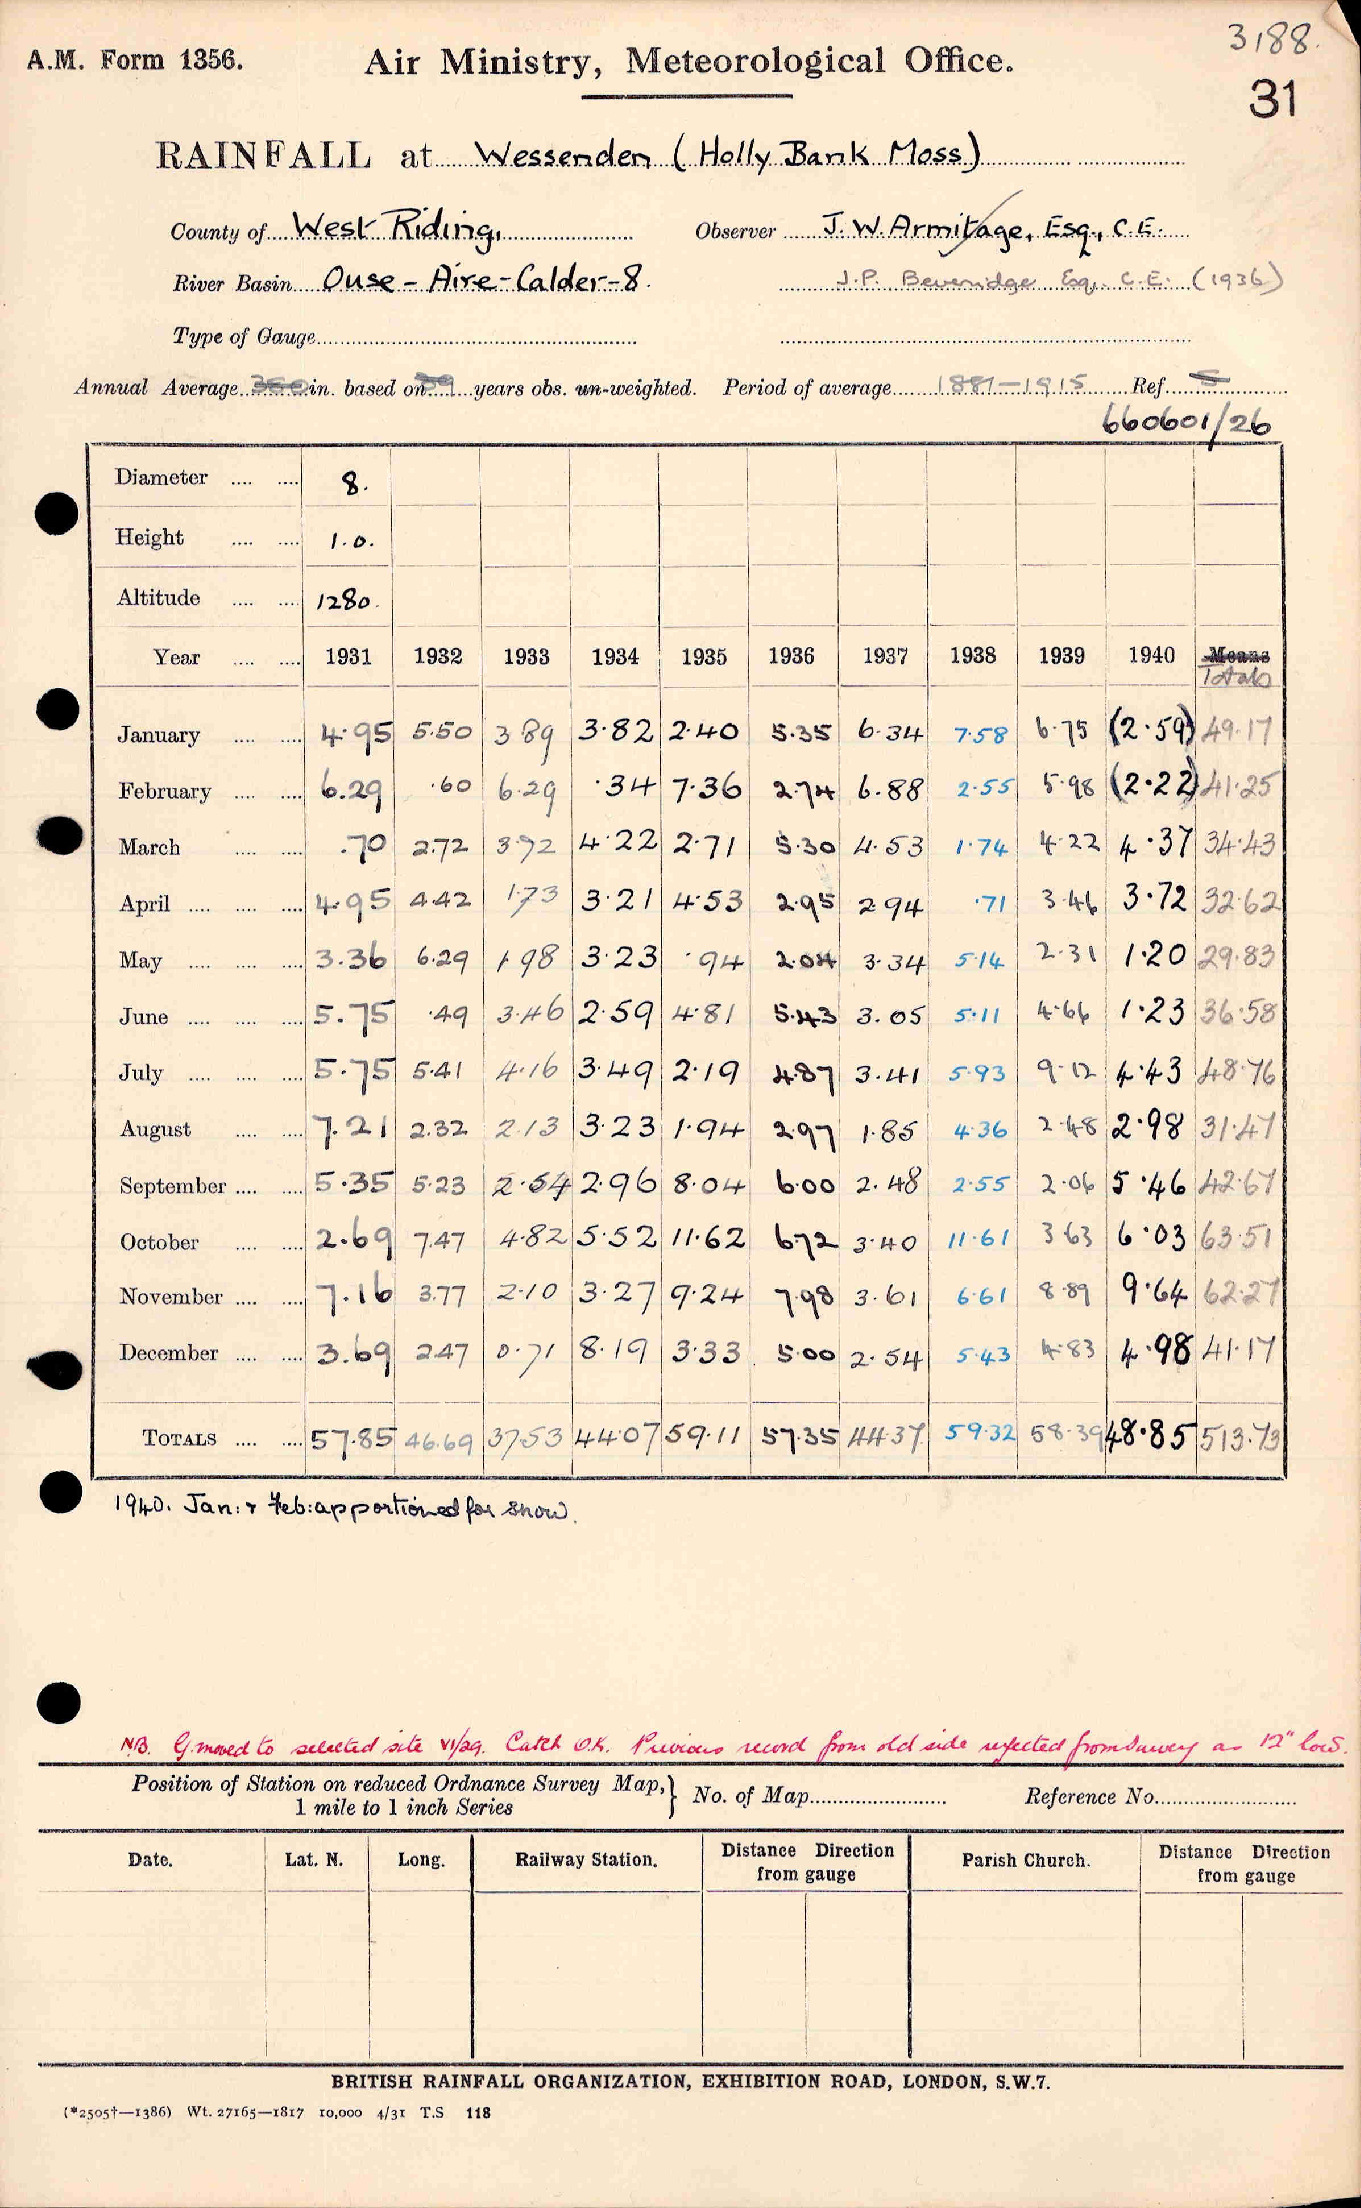 3188.
A.M. Form 1356. Air Ministry, Meteorological Office.
31
RAINFALL at Wessenden (Holly Bank Moss)
County of West Riding, Observer J. W. Armitage, Esq., C.E.
River Basin Ouse - Aire - Calder - 8. J.P. Beveridge Esq. C.E. (1936)
Type of Gauge
Annual Average in. based on 39 years obs. un-weighted. Period of average 1881-1915 Ref. 5
660601/26
Diameter 8.
Height 1.0.
Altitude 1280.
Year 1931 1932 1933 1934 1935 1936 1937 1938 1939 1940 Means
Totals
January 4.95 5.50 3.89 3.82 2.40 5.35 6.34 7.58 6.75 (2.59) 49.17
February 6.29 .60 6.29 .34 7.36 2.74 6.88 2.55 5.98 (2.22) 41.25
March .70 2.72 3.92 4.22 2.71 5.30 4.53 1.74 4.22 4.37 34.43
April 4.95 4.42 1.73 3.21 4.53 2.95 2.94 .71 3.46 3.72 32.62
May 3.36 6.29 1.98 3.23 .94 2.04 3.34 5.14 2.31 1.20 29.83
June 5.75 .49 3.46 2.59 4.81 5.43 3.05 5.11 4.66 1.23 36.58
July 5.75 5.41 4.16 3.49 2.19 4.87 3.41 5.93 9.12 4.43 48.76
August 7.21 2.32 2.13 3.23 1.94 2.97 1.85 4.36 2.48 2.98 31.47
September 5.35 5.23 2.54 2.96 8.04 6.00 2.48 2.55 2.06 5.46 42.67
October 2.69 7.47 4.82 5.52 11.62 6.72 3.40 11.61 3.63 6.03 63.51
November 7.16 3.77 2.10 3.27 9.24 7.98 3.61 6.61 8.89 9.64 62.27
December 3.69 2.47 0.71 8.19 3.33 5.00 2.54 5.43 4.83 4.98 41.17
TOTALS 57.85 46.69 37.53 44.07 59.11 57.35 44.37 59.32 58.39 48.85 513.73
1940. Jan: & Feb: apportioned for snow.
NB. G. moved to selected site VI/29. Catch O.K. Previous record from old side rejected from Survey as 12" low.
Position of Station on reduced Ordnance Survey Map, } No. of Map Reference No.
1 mile to 1 inch Series
Date. Lat. N. Long. Railway Station. Distance Direction from gauge Parish Church. Distance Direction from gauge
BRITISH RAINFALL ORGANIZATION, EXHIBITION ROAD, LONDON, S.W.7.
(*2505†—1386) Wt. 27165—1817 10,000 4/31 T.S 118